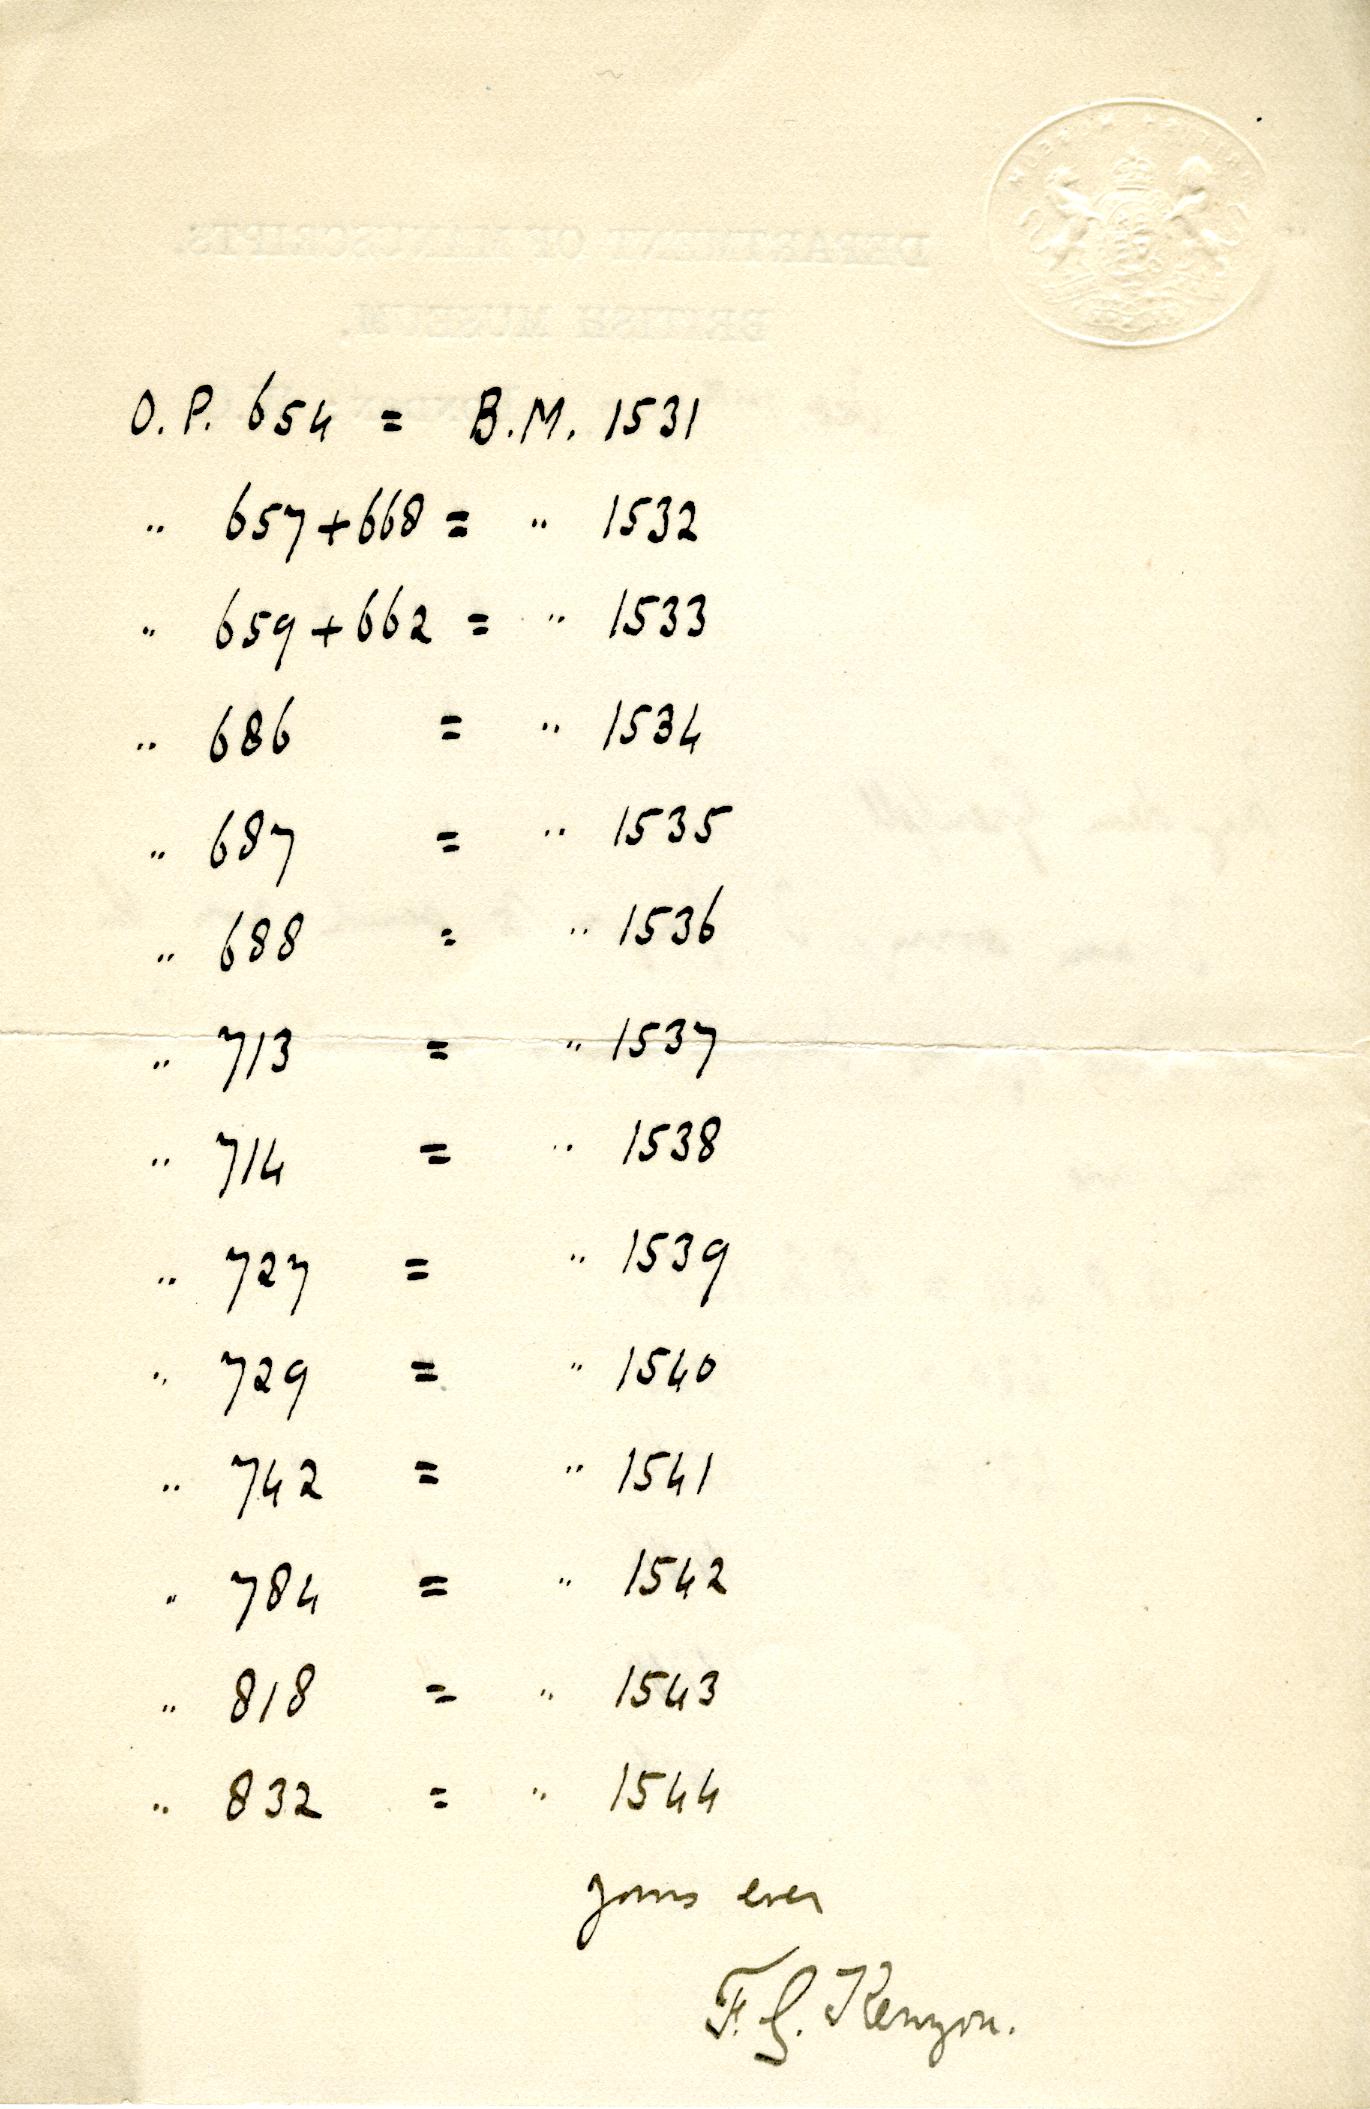 O. P. 654 = B.M. 1531
" 657+668 = " 1532
" 659+662 = " 1533
" 686 = " 1534
" 687 = " 1535
" 688 = " 1536
" 713 = " 1537
" 714 = " 1538
" 727 = " 1539
" 729 = " 1540
" 742 = " 1541
" 784 = " 1542
" 818 = " 1543
" 832 = " 1544
yours ever
F. G. Kenyon.
DEPARTMENT OF MANUSCRIPTS.
BRITISH MUSEUM.
BRITISH MUSEUM